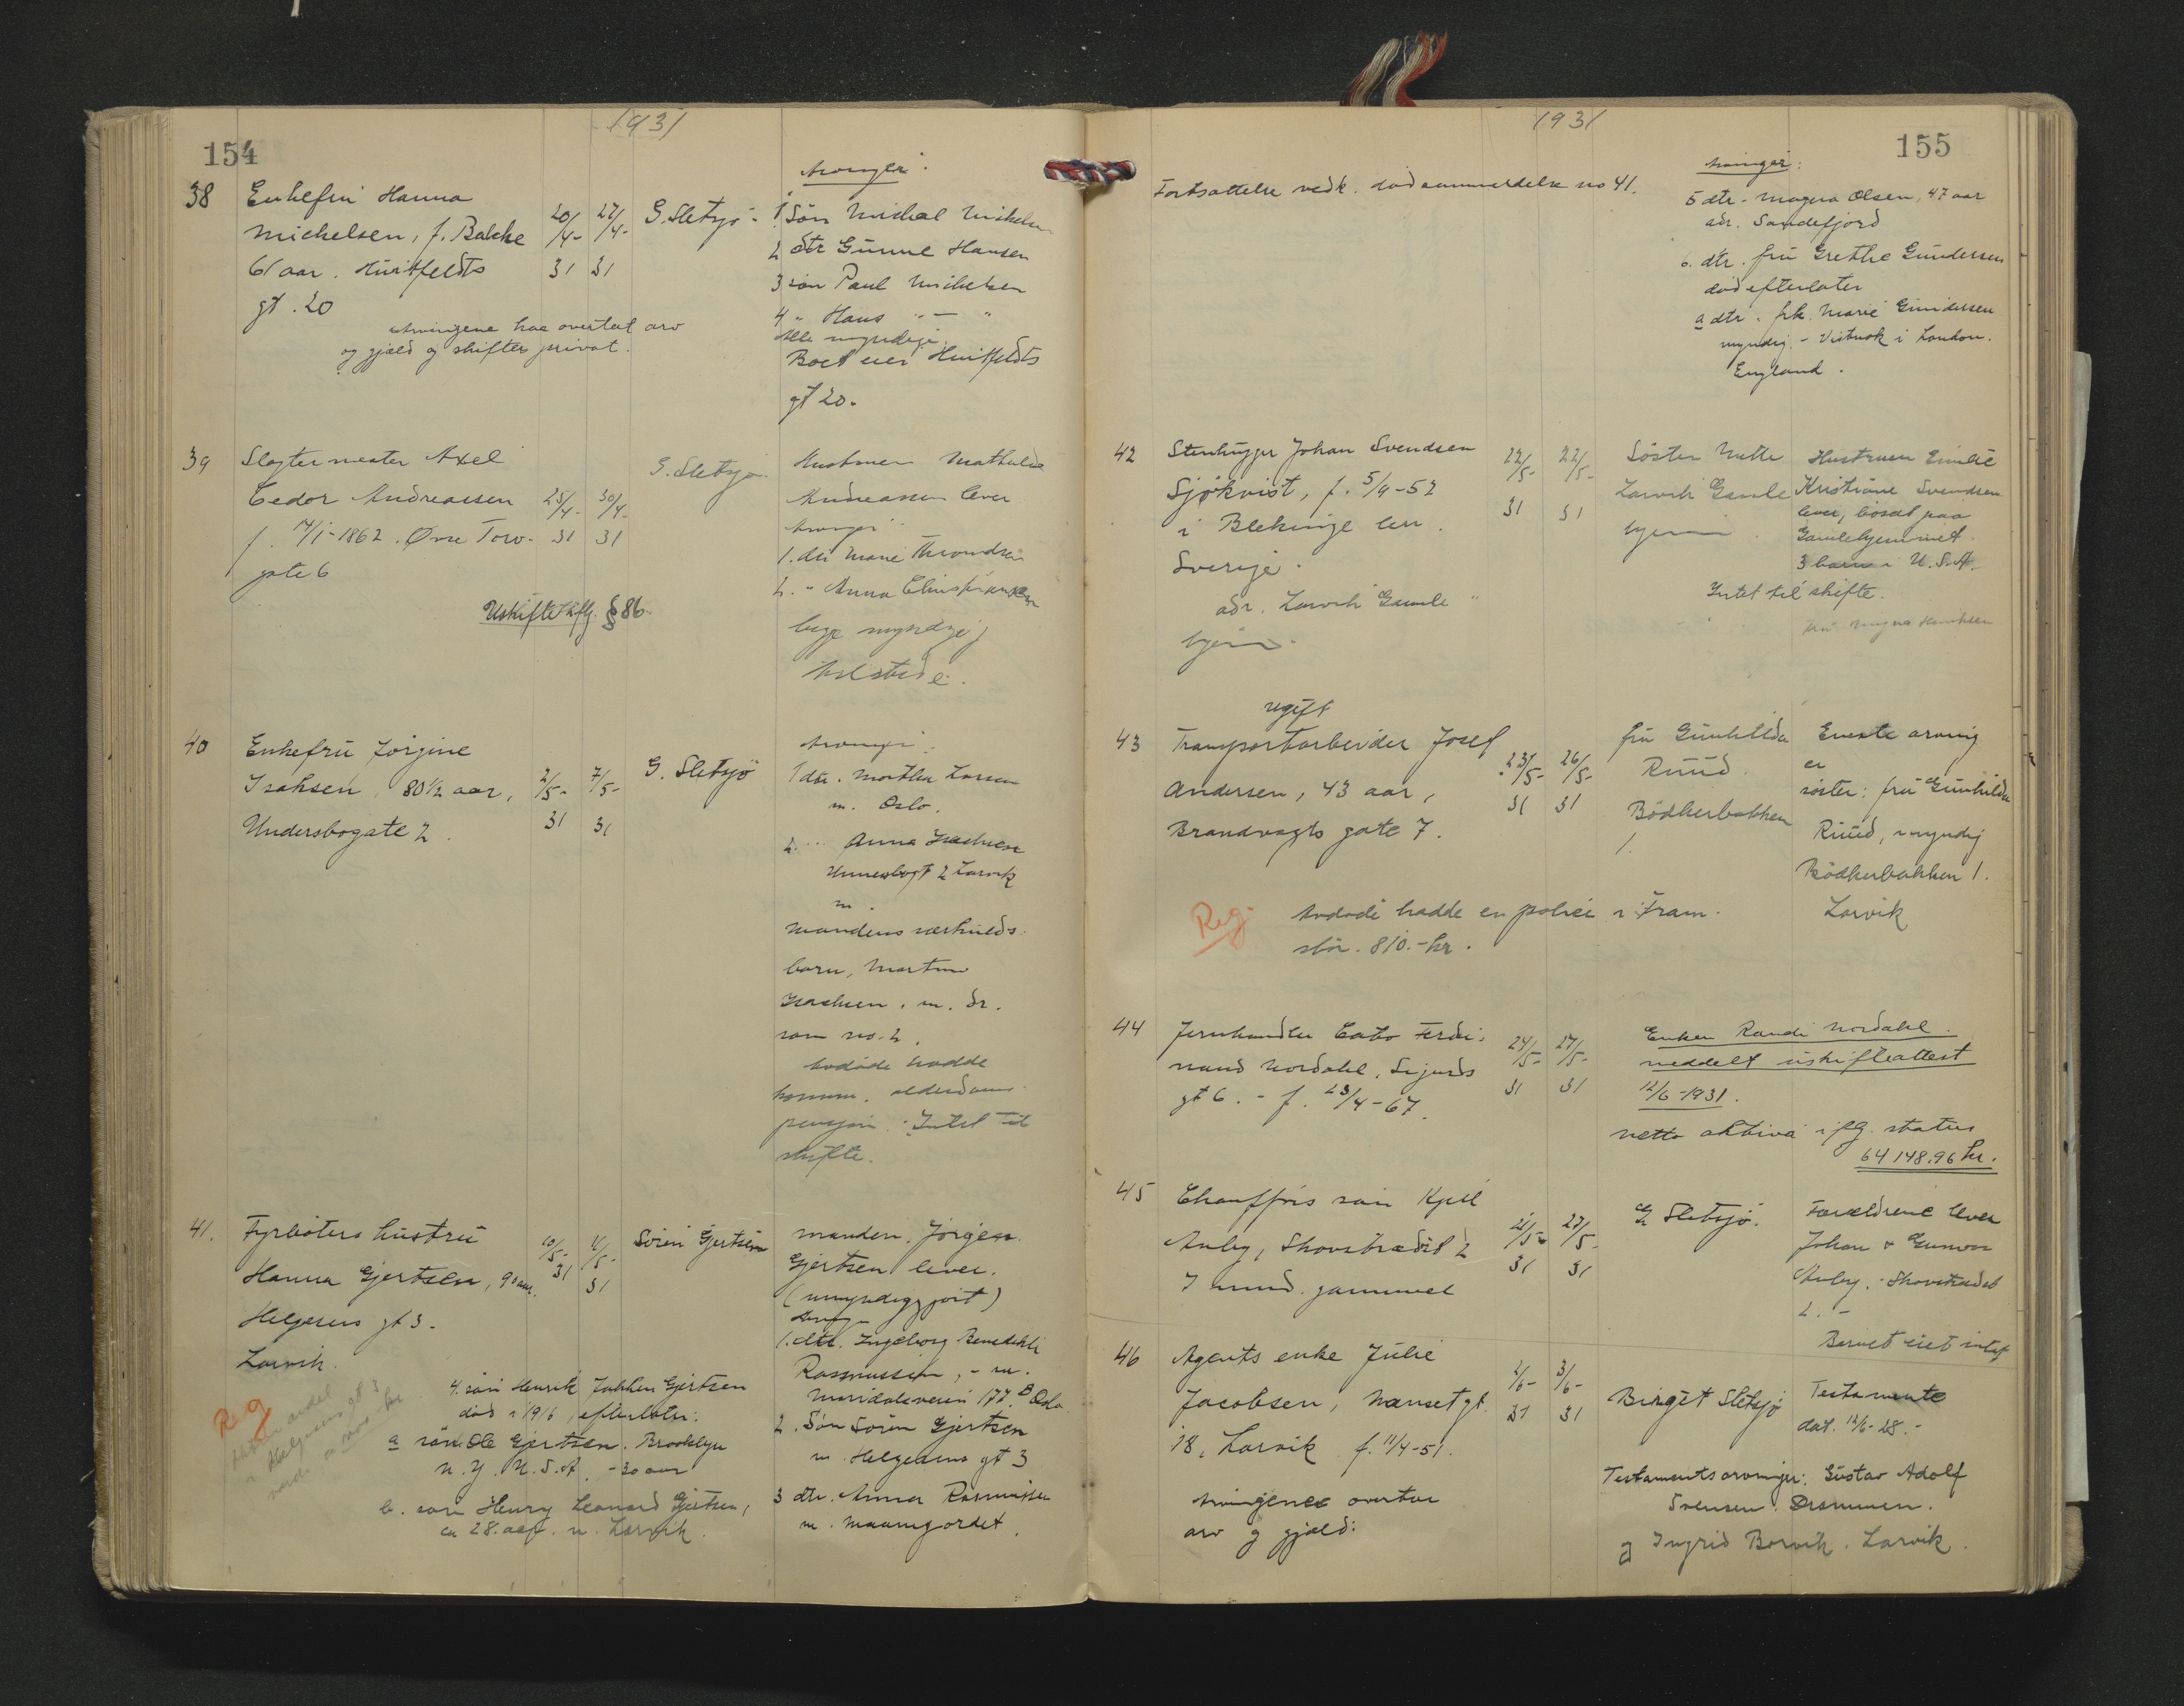 154
1931
38
Enkefru Hanna
Michelsen, f. Bakke
61 aar. Huitfeldts
gt. 20
20/4- 31
27/4- 31
G. Sletsjö -
Arvinger:
1 Sön Michal Mikelsen
2 dtr Gunne Hansen
3 sön Paul Mikelsen
4 " Hans " - "
Alle myndige.
Boet eier Huitfeldts
gt 20.
Arvingene har overtat arv
og gjæld og skifter privat.
39
Slagtermester Axel
Cedor Andreassen
f. 14/1-1862. Øvre Torv-
gate 6
25/4- 31
30/4- 31
G. Sletsjö
Hustruen Mathilde
Andreassen lever
Arvinger
1. dtr Marie Throndsen
2. " Anna Christiansen
begge myndige,
tilstede.
Uskifte iflg. § 86.
40
Enkefru Jörgine
Isaksen, 80 1/2 aar,
Undersbogate 2.
2/5- 31
7/5- 31
G. Sletsjö
Arvinger:
1 dtr. Marthe Larsen
m. Oslo.
2. " Anna Isachsen
2 Larvik
m.
Mandens særkulds-
barn, Martin
Isachsen, m. dr.
som no. 2.
Avdöde hadde
kommun. alderdoms-
pensjon. Intet til
skifte.
41.
Fyrböters hustru
Hanna Gjertsen, 90 aar.
Helgesens gt 3.
Larvik.
10/5- 31
11/5- 31
Sörin Gjertsen
manden, Jörgen
Gjertsen lever.
(umyndiggjort)
Arvinger
1. dtr. Ingeborg Benedikte
Rasmussen, - m.
Maridalsveien 177 B Oslo
2. Sön Sören Gjertsen
m. Helgesens gt 3
3 dtr. Anna Rasmussen
m.
4. sön Henrik Jakken Gjertsen
död i 1916, efterlater:
a sön Ole Gjertsen. Brooklyn
N.Y. U.S.A. - 30 aar
b. sön Henry Leonard Gjertsen,
ca 28. aar. m. Larvik.
Reg
andel
i Helgesens gt 3
verdi
155
1931
Fortsættelse vedk. dödsanmeldelse no 41.
Arvinger:
5 dtr. Magna Olsen, 47 aar
adr. Sandefjord
6. dtr. fru Grethe Gundersen
död efterlater
a dtr. frk. Marie Gundersen
myndig - Vistnok i London.
England.
42
Stenhugger Johan Svendsen
Sjökvist, f. 5/9-52
i Blekinge len.
Sverige.
adr. Larvik Gamle-
hjem.
22/5- 31
22/5- 31
Söster Mette
Larvik Gamle
hjem
Hustruen Emilie
Kristiane Svendsen
lever, bosat paa
Gamlehjemmet.
3 barn i U.S.A.
Intet til skifte.
43
ugift
Transportarbeider Josef
Andersen, 43 aar,
Brandvagts gate 7.
23/5- 31
26/5- 31
fru Gunhilda
Ruud.
Bödkerbakken
1.
Eneste arving
er
söster: fru Gunhilda
Ruud, myndig
Bödkerbakken 1.
Larvik
Reg.
Avdöde hadde en polise i Fram.
stor. 810.- kr.
44
Jernhandler Cato Ferdi-
nand Nordahl, Sigurds
gt 6. - f. 23/4-67.
24/5- 31
27/5- 31
Enken Randi Nordahl.
meddelt uskifteattest
12/6-1931.
netto aktiva iflg. status
64148.96 kr.
45
Chaufförs sön Kjell
Anby, Skovstrædet 2
7 mnd. gammel
21/5- 31
27/5- 31
G Sletsjö.
Forældrene lever
Johan & Gunvor
Anby. Skovstrædet
2. -
Barnet eiet intet
46
Agents enke Julie
Jacobsen, Nansetgt.
18, Larvik f. 11/4-51.
2/6- 31
3/6- 31
Birgit Sletsjö
Testamente
dat. 12/6-28.-
Arvingene overtar
arv og gjæld:
Testamentsarvinger: Gustav Adolf
Svensen. Drammen.
og Ingrid Borvik. Larvik.